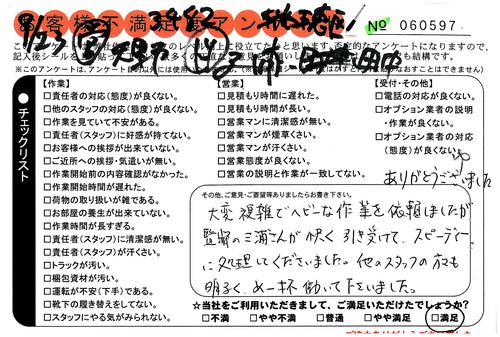 お客様不満足度アンケート
№ 060597
チェックリスト
【作業】
□責任者の対応(態度)が良くない。
□他のスタッフの対応(態度)が良くない。
□作業を見ていて不安がある。
□責任者(スタッフ)に好感が持てない。
□お客様への挨拶が出来ていない。
□ご近所への挨拶・気遣いが無い。
□作業開始前の内容確認がなかった。
□作業開始時間が遅れた。
□荷物の取り扱いが雑である。
□お部屋の養生が出来ていない。
□作業時間が長すぎる。
□責任者(スタッフ)に清潔感が無い。
□責任者(スタッフ)が汗くさい。
□トラックが汚い。
□梱包資材が汚い。
□運転が不安(下手)である。
□靴下の履き替えをしてない。
□スタッフにやる気がみられない。
【営業】
□見積もり時間に遅れた。
□見積もり時間が長い。
□営業マンに清潔感が無い。
□営業マンが煙草くさい。
□営業マンが汗くさい。
□営業態度が良くない。
□営業の説明と作業が一致してない。
【受付・その他】
□電話の対応が良くない。
□オプション業者の説明
・作業が良くない。
□オプション業者の対応
(態度)が良くない。
ありがとうございました
その他、ご意見・ご要望等ありましたらお書き下さい。
大変複雑でヘビーな作業を依頼しましたが
監督の三浦さんが快く引き受けて、スピーディー
に処理してくださいました。他のスタッフの方も
明るく、めー杯働いて下さいました。
☆当社をご利用いただきまして、ご満足いただけたでしょうか?
□不満 □やや不満 □普通 □やや満足 □満足